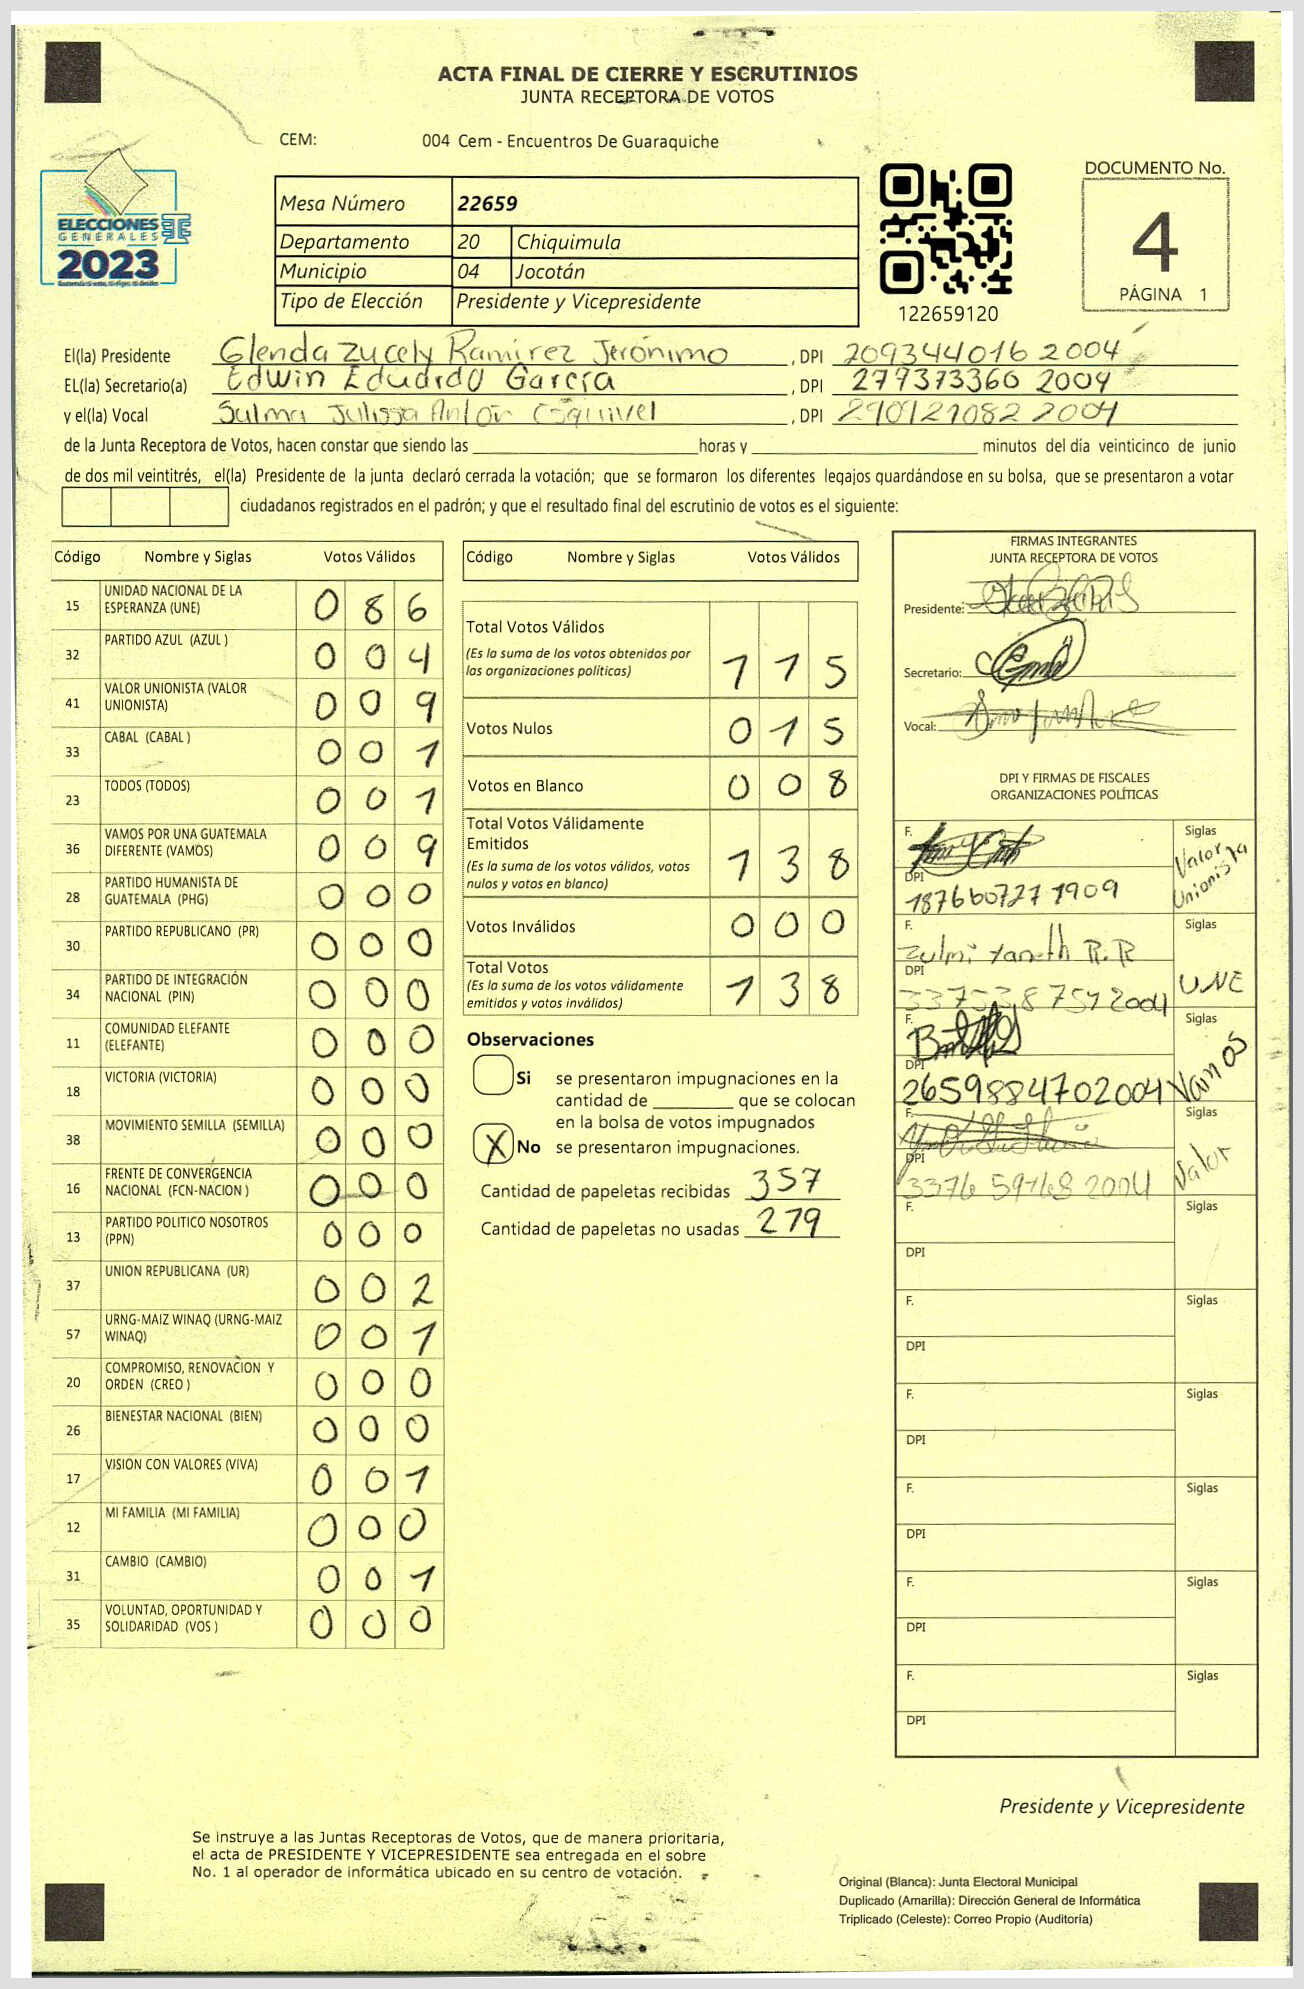 ACTA FINAL DE CIERRE Y ESCRUTINIOS
JUNTA RECEPTORA DE VOTOS
CEM: 004 Cem - Encuentros De Guaraquiche
ELECCIONES
GENERALES
2023
Mesa Número 22659
Departamento 20 Chiquimula
Municipio 04 Jocotán
Tipo de Elección Presidente y Vicepresidente
122659120
DOCUMENTO No.
4
PÁGINA 1
El(la) Presidente Glenda Zucely Ramírez Jerónimo, DPI 209344016 2004
EL(la) Secretario(a) Edwin Eduardo García, DPI 277373360 2004
y el(la) Vocal Julissa Esquivel, DPI 2004
de la Junta Receptora de Votos, hacen constar que siendo las horas y minutos del día veinticinco de junio
de dos mil veintitrés, el(la) Presidente de la junta declaró cerrada la votación; que se formaron los diferentes legajos guardándose en su bolsa, que se presentaron a votar
ciudadanos registrados en el padrón; y que el resultado final del escrutinio de votos es el siguiente:
Código Nombre y Siglas Votos Válidos
15 UNIDAD NACIONAL DE LA ESPERANZA (UNE) 0 8 6
32 PARTIDO AZUL (AZUL ) 0 0 4
41 VALOR UNIONISTA (VALOR UNIONISTA) 0 0 9
33 CABAL (CABAL ) 0 0 1
23 TODOS (TODOS) 0 0 1
36 VAMOS POR UNA GUATEMALA DIFERENTE (VAMOS) 0 0 9
28 PARTIDO HUMANISTA DE GUATEMALA (PHG) 0 0 0
30 PARTIDO REPUBLICANO (PR) 0 0 0
34 PARTIDO DE INTEGRACIÓN NACIONAL (PIN) 0 0 0
11 COMUNIDAD ELEFANTE (ELEFANTE) 0 0 0
18 VICTORIA (VICTORIA) 0 0 0
38 MOVIMIENTO SEMILLA (SEMILLA) 0 0 0
16 FRENTE DE CONVERGENCIA NACIONAL (FCN-NACION ) 0 0 0
13 PARTIDO POLITICO NOSOTROS (PPN) 0 0 0
37 UNION REPUBLICANA (UR) 0 0 2
57 URNG-MAIZ WINAQ (URNG-MAIZ WINAQ) 0 0 1
20 COMPROMISO, RENOVACION Y ORDEN (CREO ) 0 0 0
26 BIENESTAR NACIONAL (BIEN) 0 0 0
17 VISION CON VALORES (VIVA) 0 0 1
12 MI FAMILIA (MI FAMILIA) 0 0 0
31 CAMBIO (CAMBIO) 0 0 1
35 VOLUNTAD, OPORTUNIDAD Y SOLIDARIDAD (VOS ) 0 0 0
Código Nombre y Siglas Votos Válidos
Total Votos Válidos 1 1 5
(Es la suma de los votos obtenidos por
las organizaciones políticas)
Votos Nulos 0 1 5
Votos en Blanco 0 0 8
Total Votos Válidamente
Emitidos 1 3 8
(Es la suma de los votos válidos, votos
nulos y votos en blanco)
Votos Inválidos 0 0 0
Total Votos 1 3 8
(Es la suma de los votos válidamente
emitidos y votos inválidos)
Observaciones
Si se presentaron impugnaciones en la
cantidad de que se colocan
en la bolsa de votos impugnados
X No se presentaron impugnaciones.
Cantidad de papeletas recibidas 357
Cantidad de papeletas no usadas 279
FIRMAS INTEGRANTES
JUNTA RECEPTORA DE VOTOS
Presidente:
Secretario:
Vocal:
DPI Y FIRMAS DE FISCALES
ORGANIZACIONES POLÍTICAS
F. Siglas
DPI Valor Unionista
1909
F. Zulmi Yaneth R.R Siglas
DPI UNE
2004
F. Siglas
DPI Vamos
2659884702004
F. Siglas
DPI Valor
2004
F. Siglas
DPI
F. Siglas
DPI
F. Siglas
DPI
F. Siglas
DPI
F. Siglas
DPI
F. Siglas
DPI
Presidente y Vicepresidente
Se instruye a las Juntas Receptoras de Votos, que de manera prioritaria,
el acta de PRESIDENTE Y VICEPRESIDENTE sea entregada en el sobre
No. 1 al operador de informática ubicado en su centro de votación.
Original (Blanca): Junta Electoral Municipal
Duplicado (Amarilla): Dirección General de Informática
Triplicado (Celeste): Correo Propio (Auditoría)